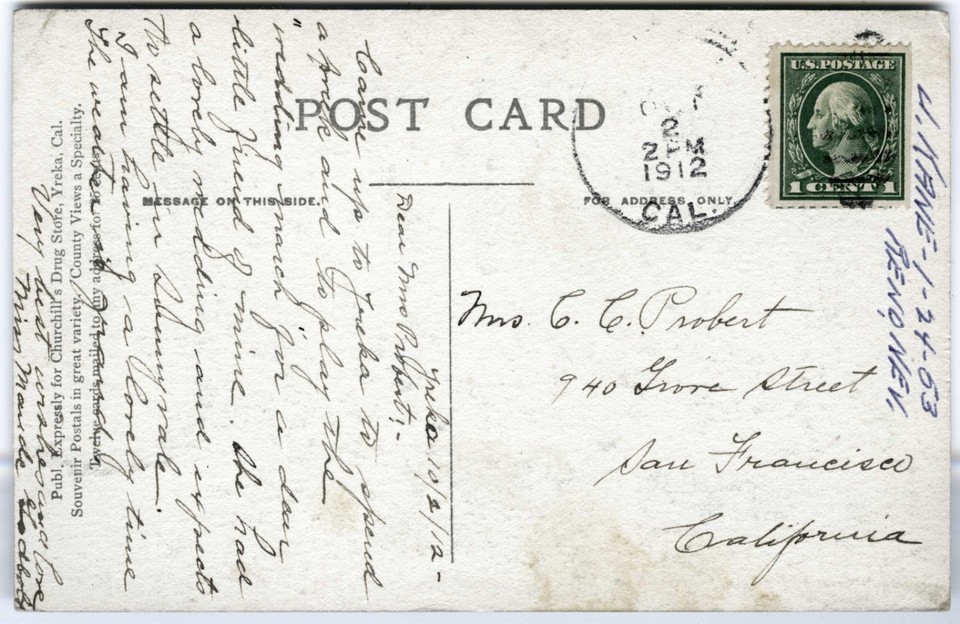 POST CARD
MESSAGE ON THIS SIDE.
FOR ADDRESS ONLY
2
2 PM
1912
CAL.
U.S. POSTAGE
1 CENT 1
Mrs. C. C. Probert
940 Grove Street
San Francisco
California
W. KANE-1-24-63
RENO, NEV.
Yreka 10/2/12-
Dear Mrs Probert:-
Came up to Yreka to spend
a week and to play the
"wedding march for a dear
little friend of mine. She had
a lovely wedding and expects
to settle in Sunnyvale.
I am having a lovely time
The weather is
Very best wishes and love
Miss Maude
Publ. Expressly for Churchill's Drug Store, Yreka, Cal.
Souvenir Postals in great variety. County Views a Specialty.
Twelve cards mailed to any address for